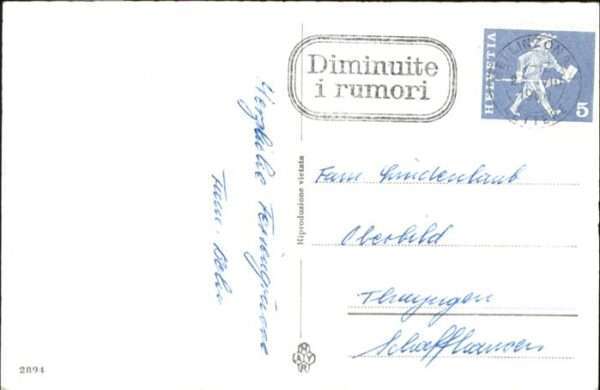 Diminuite
i rumori
HELVETIA
5
LINZON
Herzliche Feriengrüsse
Fam.
Riproduzione vietata
Fam Lindenlaub
Oberbild
Thayngen
Schaffhausen
2894